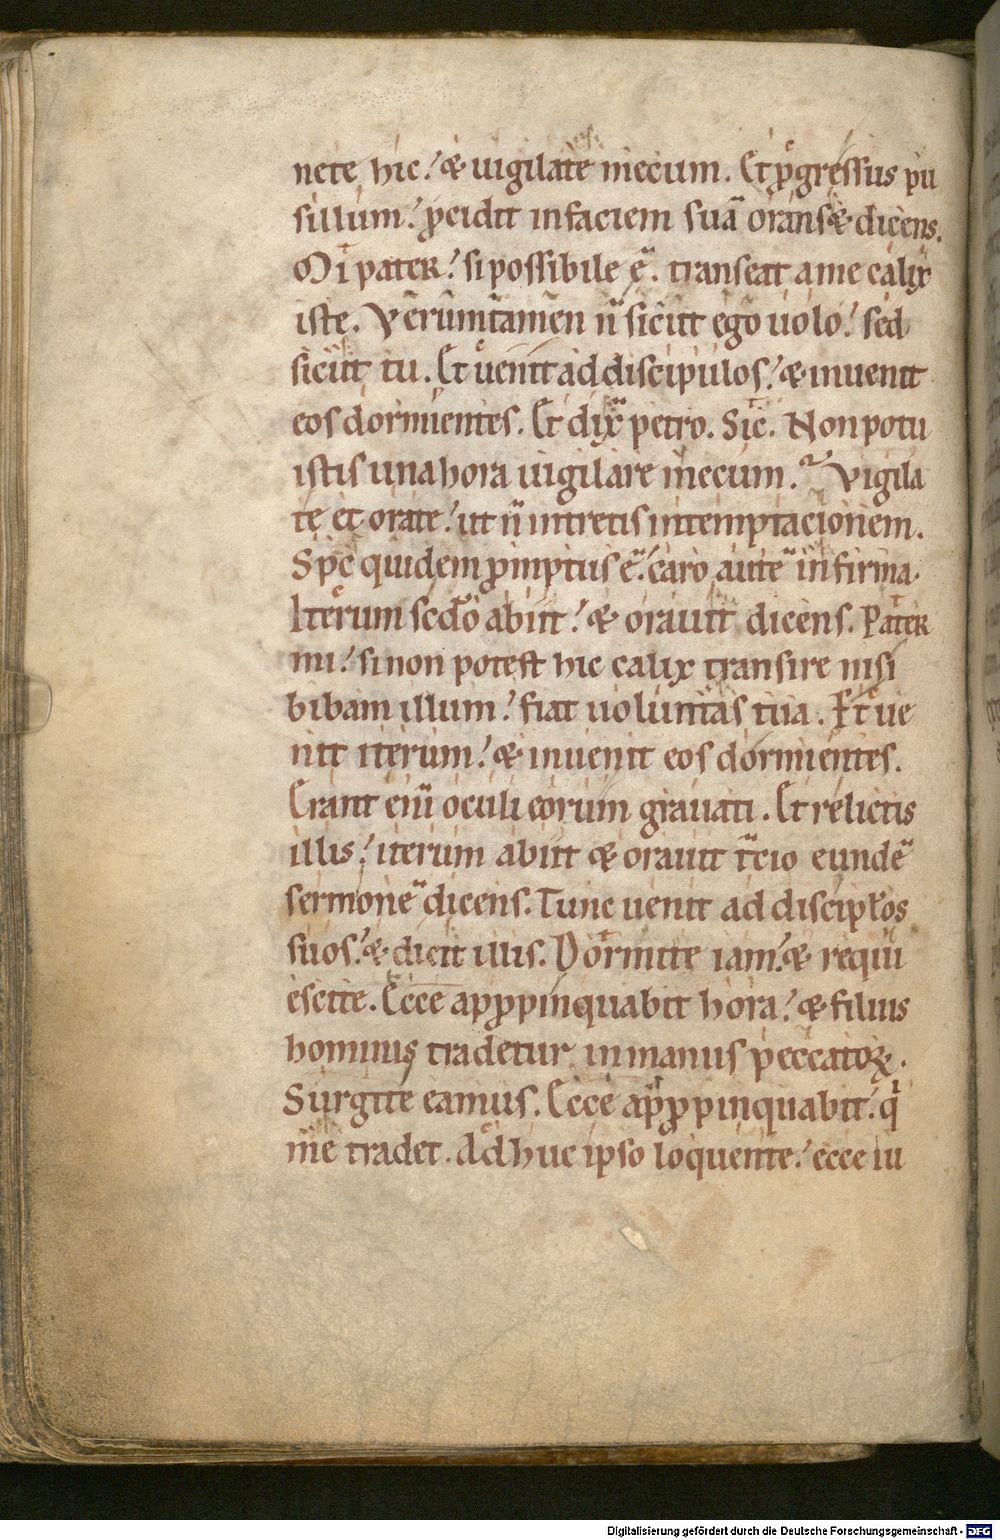 nete hic. & uigilate mecum. Et ꝓgressus pu
sillum. ꝓcidit infaciem suā orans & dicens.
Mi pater. sipossibile ē. transeat ame calix
iste. Verūmtamen n̄ sicut ego uolo. sed
sicut tu. Et uenit addiscipulos. & inuenit
eos dormientes. Et dix̄ petro. Sic. Nonpotu
istis unahora uigilare mecum. Vigila
te et orate. ut n̄ intretis intemptacionem.
Spc̄ quidem ꝓmptus ē. caro autē infirma.
Iterum scđo abiit. & orauit dicens. Pater
mi. sinon potest hic calix transire nisi
bibam illum. fiat uoluntas tua. Et ue
nit iterum. & inuenit eos dormientes.
Erant eni̅ oculi eorum grauati. Et relictis
illis. iterum abiit & orauit t̄cio eundē
sermonē dicens. Tunc uenit ad discipłos
suos. & dicit illis. Dormite iam. & requi
escite. Ecce apꝓpinquabit hora. & filius
hominis tradetur inmanus peccatoꝝ.
Surgite eamus. Ecce apꝓpinquabit. q
me tradet. Adhuc ipso loquente. ecce iu
Digitalisierung gefördert durch die Deutsche Forschungsgemeinschaft - DFG